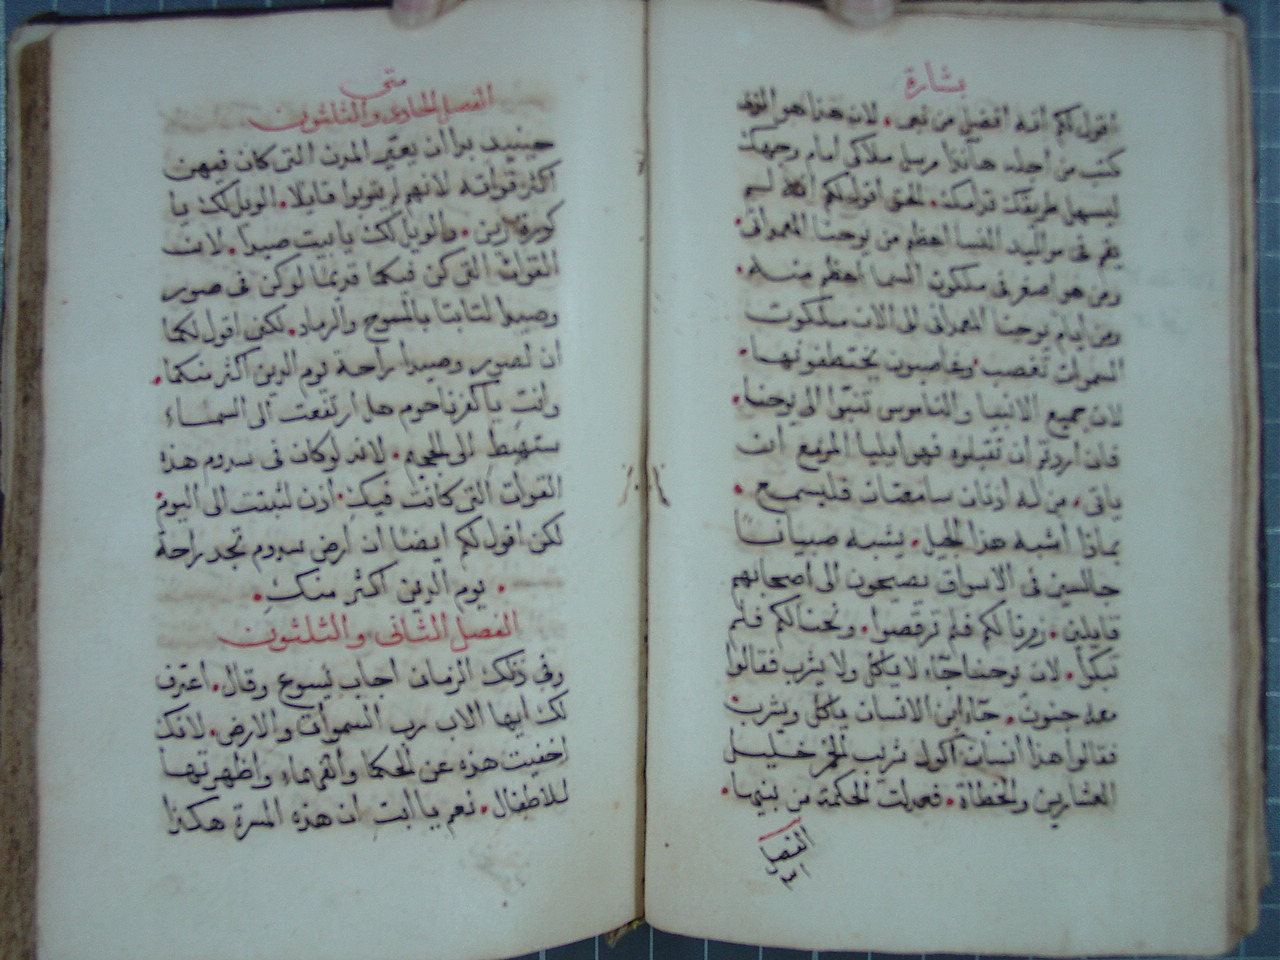 بشارة
اقول لكم انه افضل من نبى . لان هذا هو الذى
كتب من اجله هاانذا مرسل ملاكى امام وجهك
ليسهل طريقك قدامك . الحق اقول لكم انه لم
يقم فى مواليد النسا اعظم من يوحنا المعمدانى .
ومن هو اصغر فى ملكوت السما اعظم منه .
ومن ايام يوحنا المعمدانى الى الان ملكوت
السموات تغصب . وغاصبون يختطفونها .
لان جميع الانبيا والناموس تنبوا الى يوحنا .
فان اردتم ان تقبلوه فهو ايليا المزمع ان
ياتى . من له اذنان سامعتان فليسمع .
بماذا اشبه هذا الجيل . يشبه صبيانا
جالسين فى الاسواق يصيحون الى اصحابهم
قايلين . زمرنا لكم فلم ترقصوا . ونحنا لكم فلم
تبكوا . لان يوحنا جآء لا ياكل ولا يشرب فقالوا
معه جنون . جآء ابن الانسان ياكل ويشرب
فقالوا هذا انسان اكول شريب الخمر خليل
العشارين والخطاة . فعدلت الحكمة من بنيها .
متى
الفصل الحادى والثلثون
حينيد بدا ان يعير المدن التى كان فيهن
اكثر قواته لانهم لم يتوبوا قايلا . الويل لك يا
كورزين . والويل لك يا بيت صيدا . لان
القوات التى كن فيكما قديما لو كن فى صور
وصيدا لتابتا بالمسوح والرماد . لكنى اقول لكما
ان لصور وصيدا راحة يوم الدين اكثر منكما .
وانت يا كفرناحوم هل ارتفعت الى السماء
ستهبط الى الجحيم . لانه لو كان فى سدوم هذه
القوات التى كانت فيك . اذن لثبتت الى اليوم
لكن اقول لكم ايضا ان ارض سدوم تجد راحة
. يوم الدين اكثر منك .
الفصل الثانى والثلثون
وفى ذلك الزمان اجاب يسوع وقال . اعترف
لك ايها الاب رب السموات والارض . لانك
اخفيت هذه عن الحكما والفهماء واظهرتها
للاطفال . نعم يا ابت ان هذه المسرة هكذا